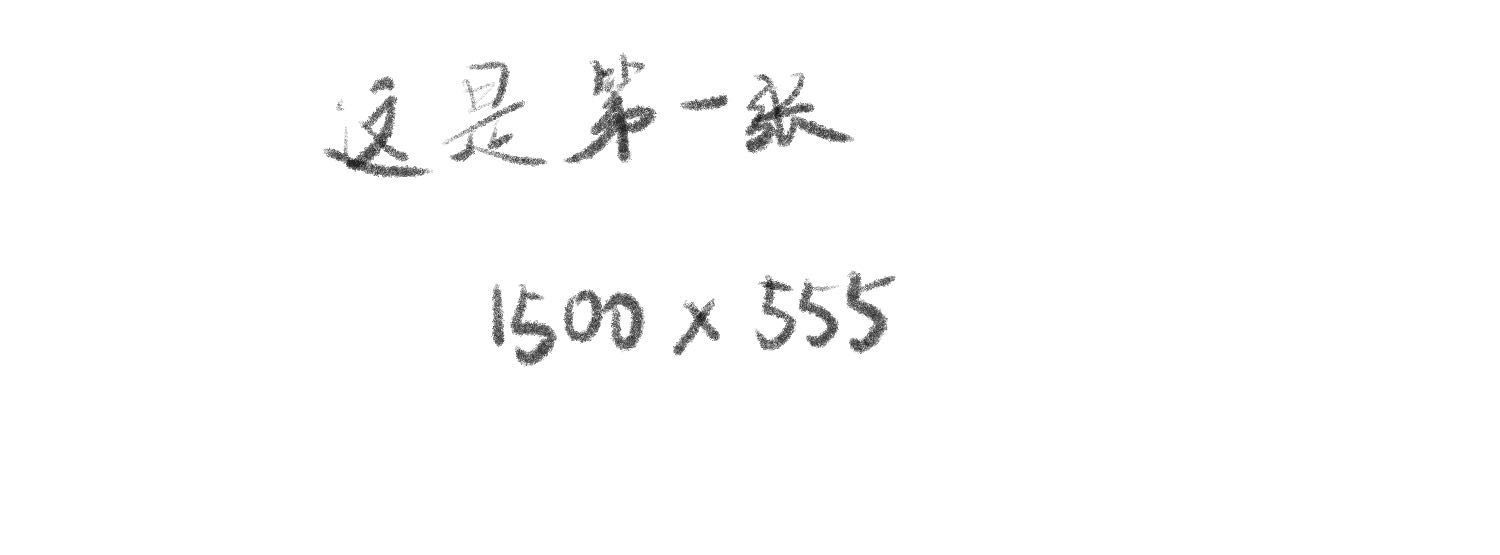 这是第一张
1500 x 555